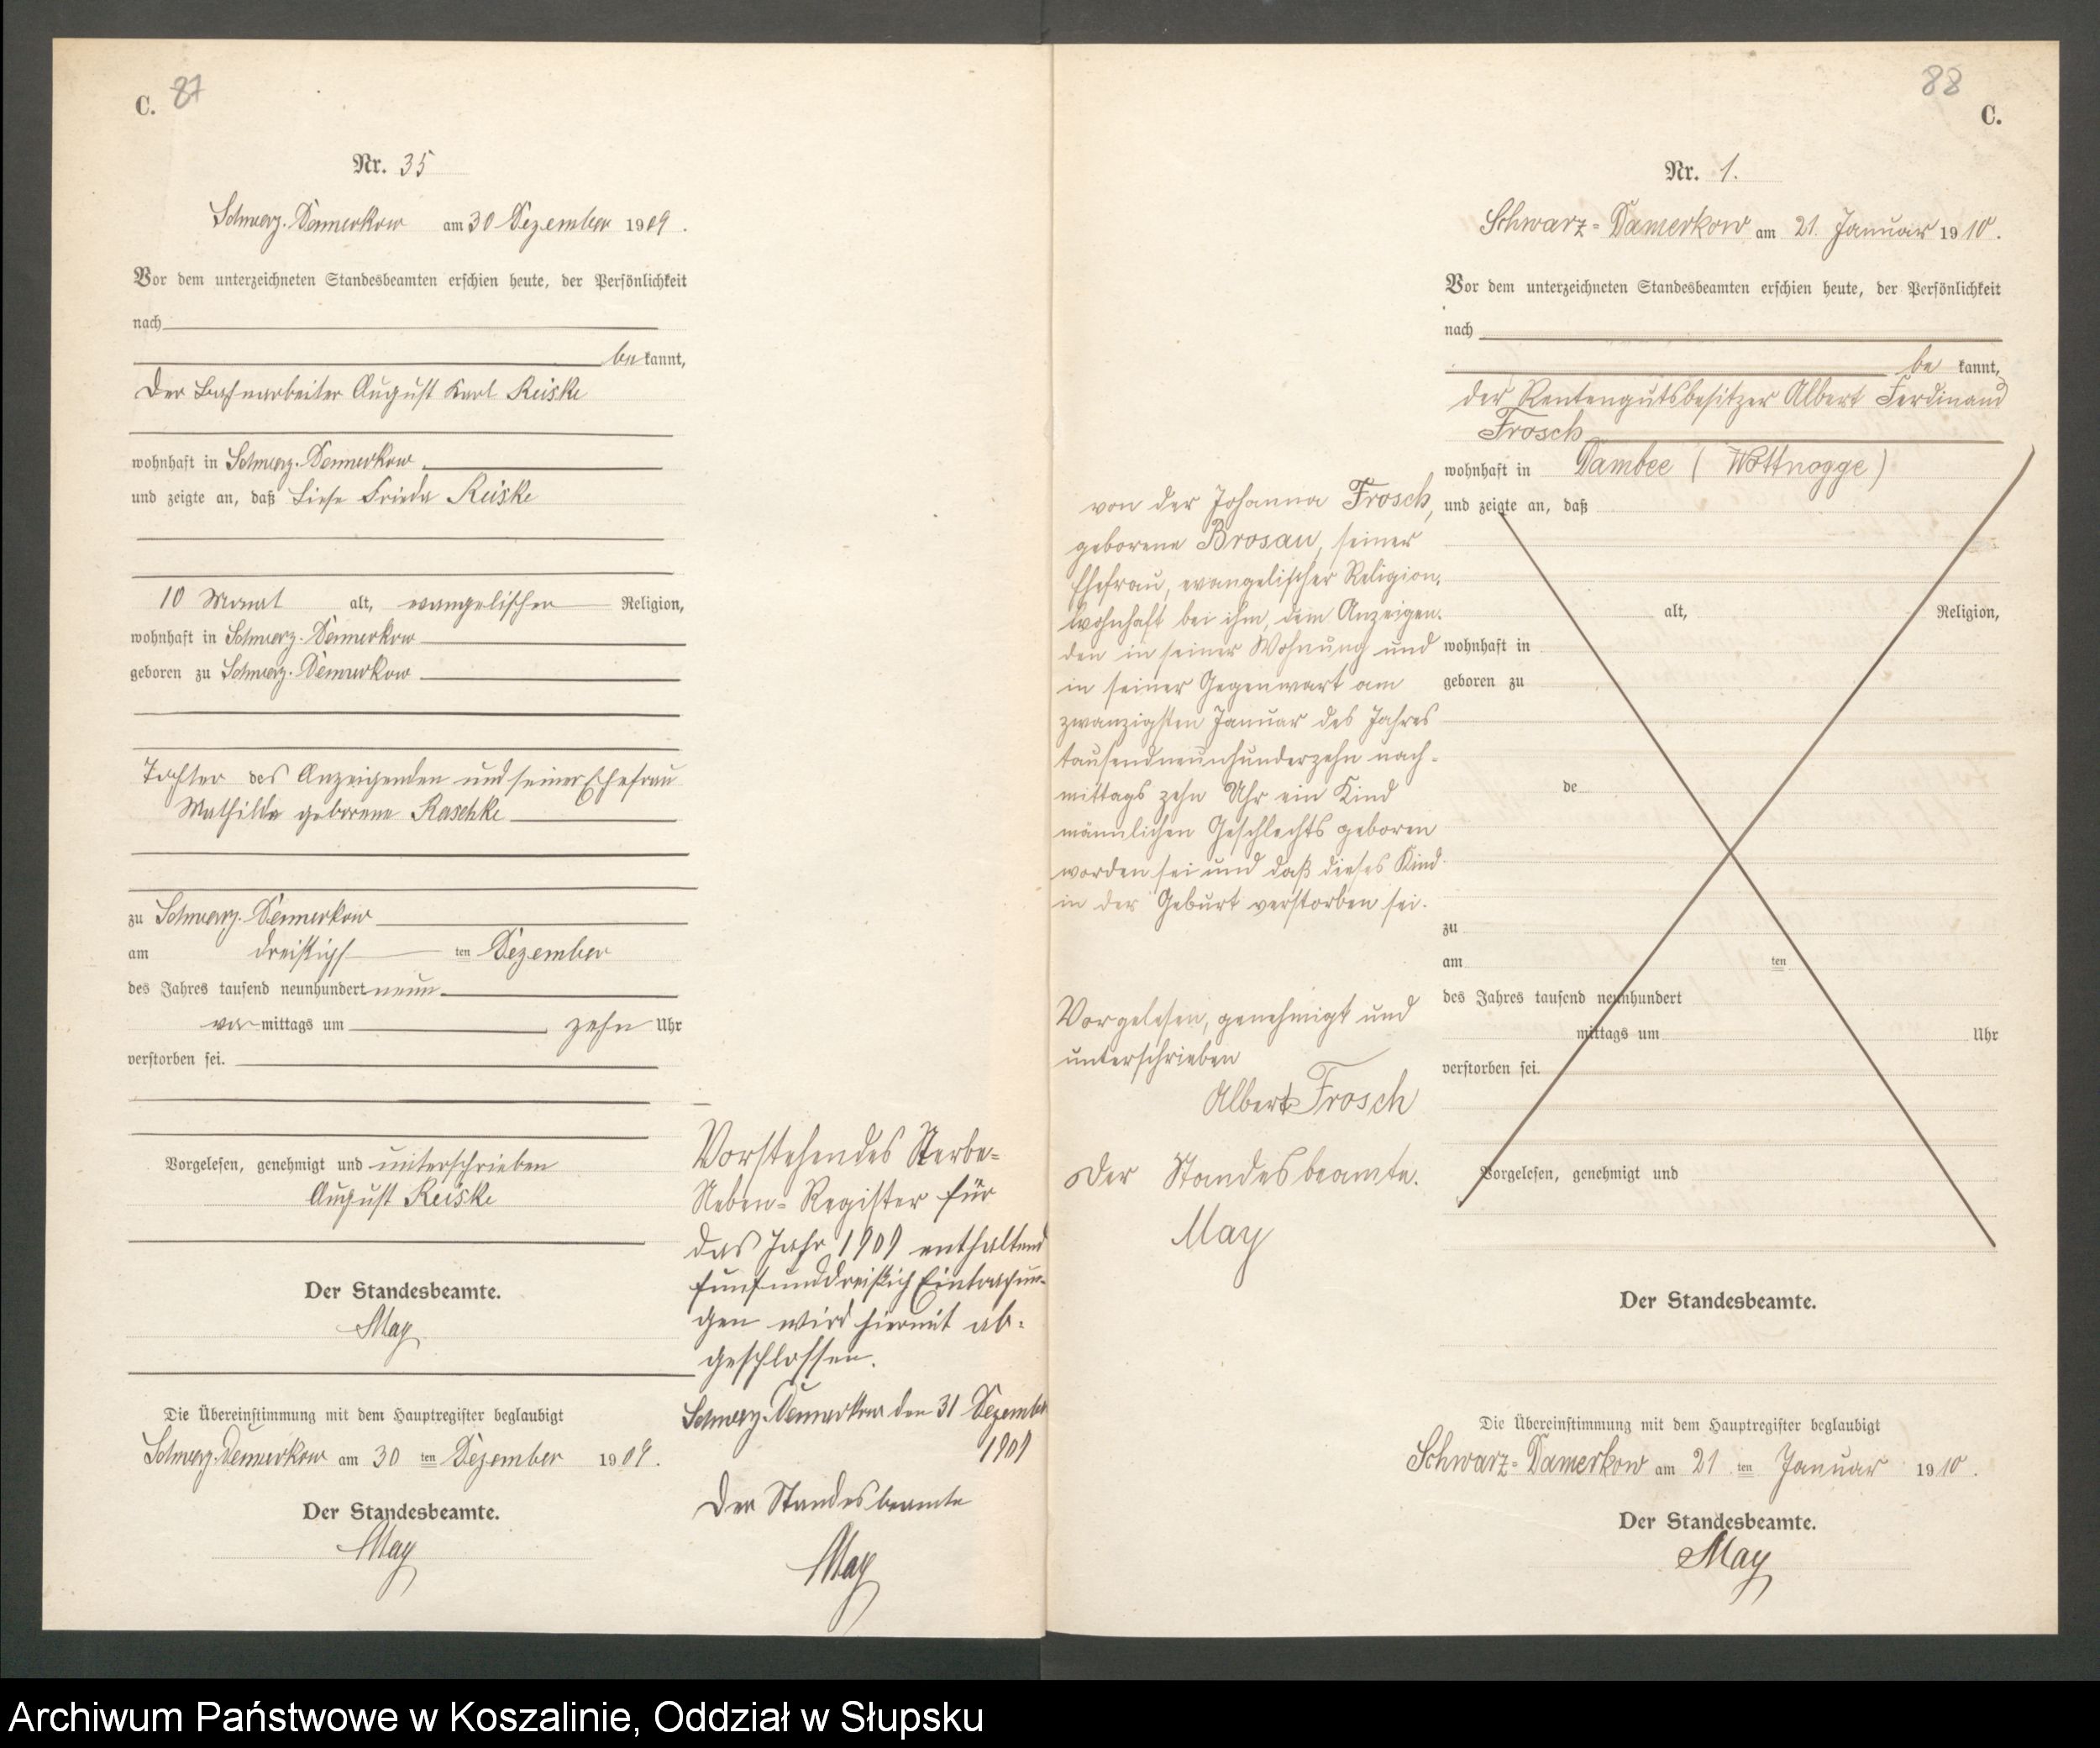 C. 87
Nr. 35
Schwarz-Damerkow am 30 Dezember 1909.
Vor dem unterzeichneten Standesbeamten erschien heute, der Persönlichkeit
nach
be kannt,
der Bahnarbeiter August Karl Reiske
wohnhaft in Schwarz-Damerkow
und zeigte an, daß Liese Frieda Reiske
10 Monat alt, evangelischer Religion,
wohnhaft in Schwarz-Damerkow
geboren zu Schwarz-Damerkow
Tochter des Anzeigenden und seiner Ehefrau
Mathilde geborene Raschke
zu Schwarz-Damerkow
am dreißigs ten Dezember
des Jahres tausend neunhundert neun
vor mittags um zehn Uhr
verstorben sei.
Vorgelesen, genehmigt und unterschrieben
August Reiske
Der Standesbeamte.
May
Die Übereinstimmung mit dem Hauptregister beglaubigt
Schwarz-Damerkow am 30 ten Dezember 1909.
Der Standesbeamte.
May
Vorstehendes Sterbe-
Neben-Register für
das Jahr 1909 enthaltend
fünfunddreißich Eintragun-
gen wird hiermit ab-
geschlossen.
Schwarz-Damerkow den 31 Dezember
1909
Der Standesbeamte
May
88
C.
Nr. 1.
Schwarz-Damerkow am 21. Januar 1910.
Vor dem unterzeichneten Standesbeamten erschien heute, der Persönlichkeit
nach
be kannt,
der Rentengutsbesitzer Albert Ferdinand
Frosch
wohnhaft in Dambee (Wottnogge)
und zeigte an, daß
alt, Religion,
wohnhaft in
geboren zu
de
zu
am ten
des Jahres tausend neunhundert
mittags um Uhr
verstorben sei.
Vorgelesen, genehmigt und
von der Johanna Frosch,
geborene Brosau, seiner
Ehefrau, evangelischer Religion,
wohnhaft bei ihm, dem Anzeigen-
den in seiner Wohnung und
in seiner Gegenwart am
zwanzigsten Januar des Jahres
tausendneunhunderzehn nach-
mittags zehn Uhr ein Kind
männlichen Geschlechts geboren
worden sei und daß dieses Kind
in der Geburt verstorben sei.
Vorgelesen, genehmigt und
unterschrieben
Albert Frosch
Der Standesbeamte.
May
Der Standesbeamte.
Die Übereinstimmung mit dem Hauptregister beglaubigt
Schwarz-Damerkow am 21 ten Januar 1910.
Der Standesbeamte.
May
Archiwum Państwowe w Koszalinie, Oddział w Słupsku